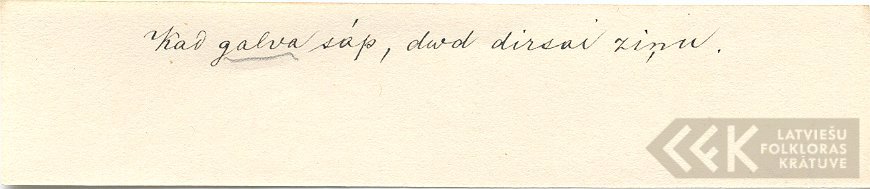 Kad galva sáp, dwd dirsai ziņu.
LATVIEŠU
FOLKLORAS
KRĀTUVE